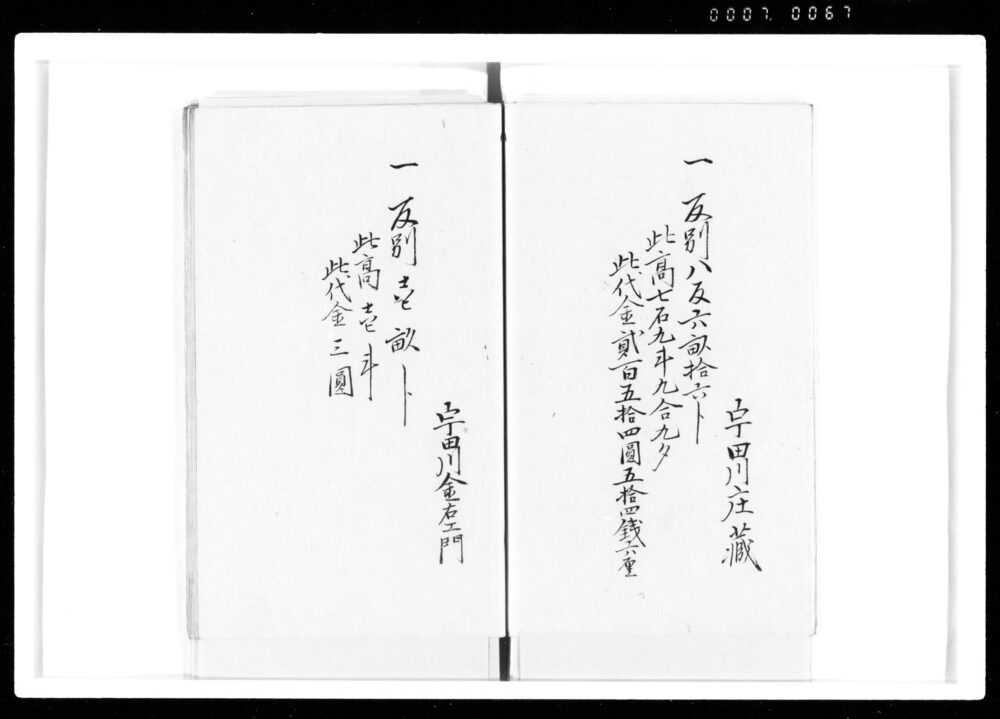 0007. 0067
宇田川庄藏
一 反別八反六畝拾六卜
此高七石九斗九合九夕
此代金貳百五拾四圓五拾四銭六厘
宇田川金右エ門
一 反別壱畝卜
此高壱斗
此代金三圓